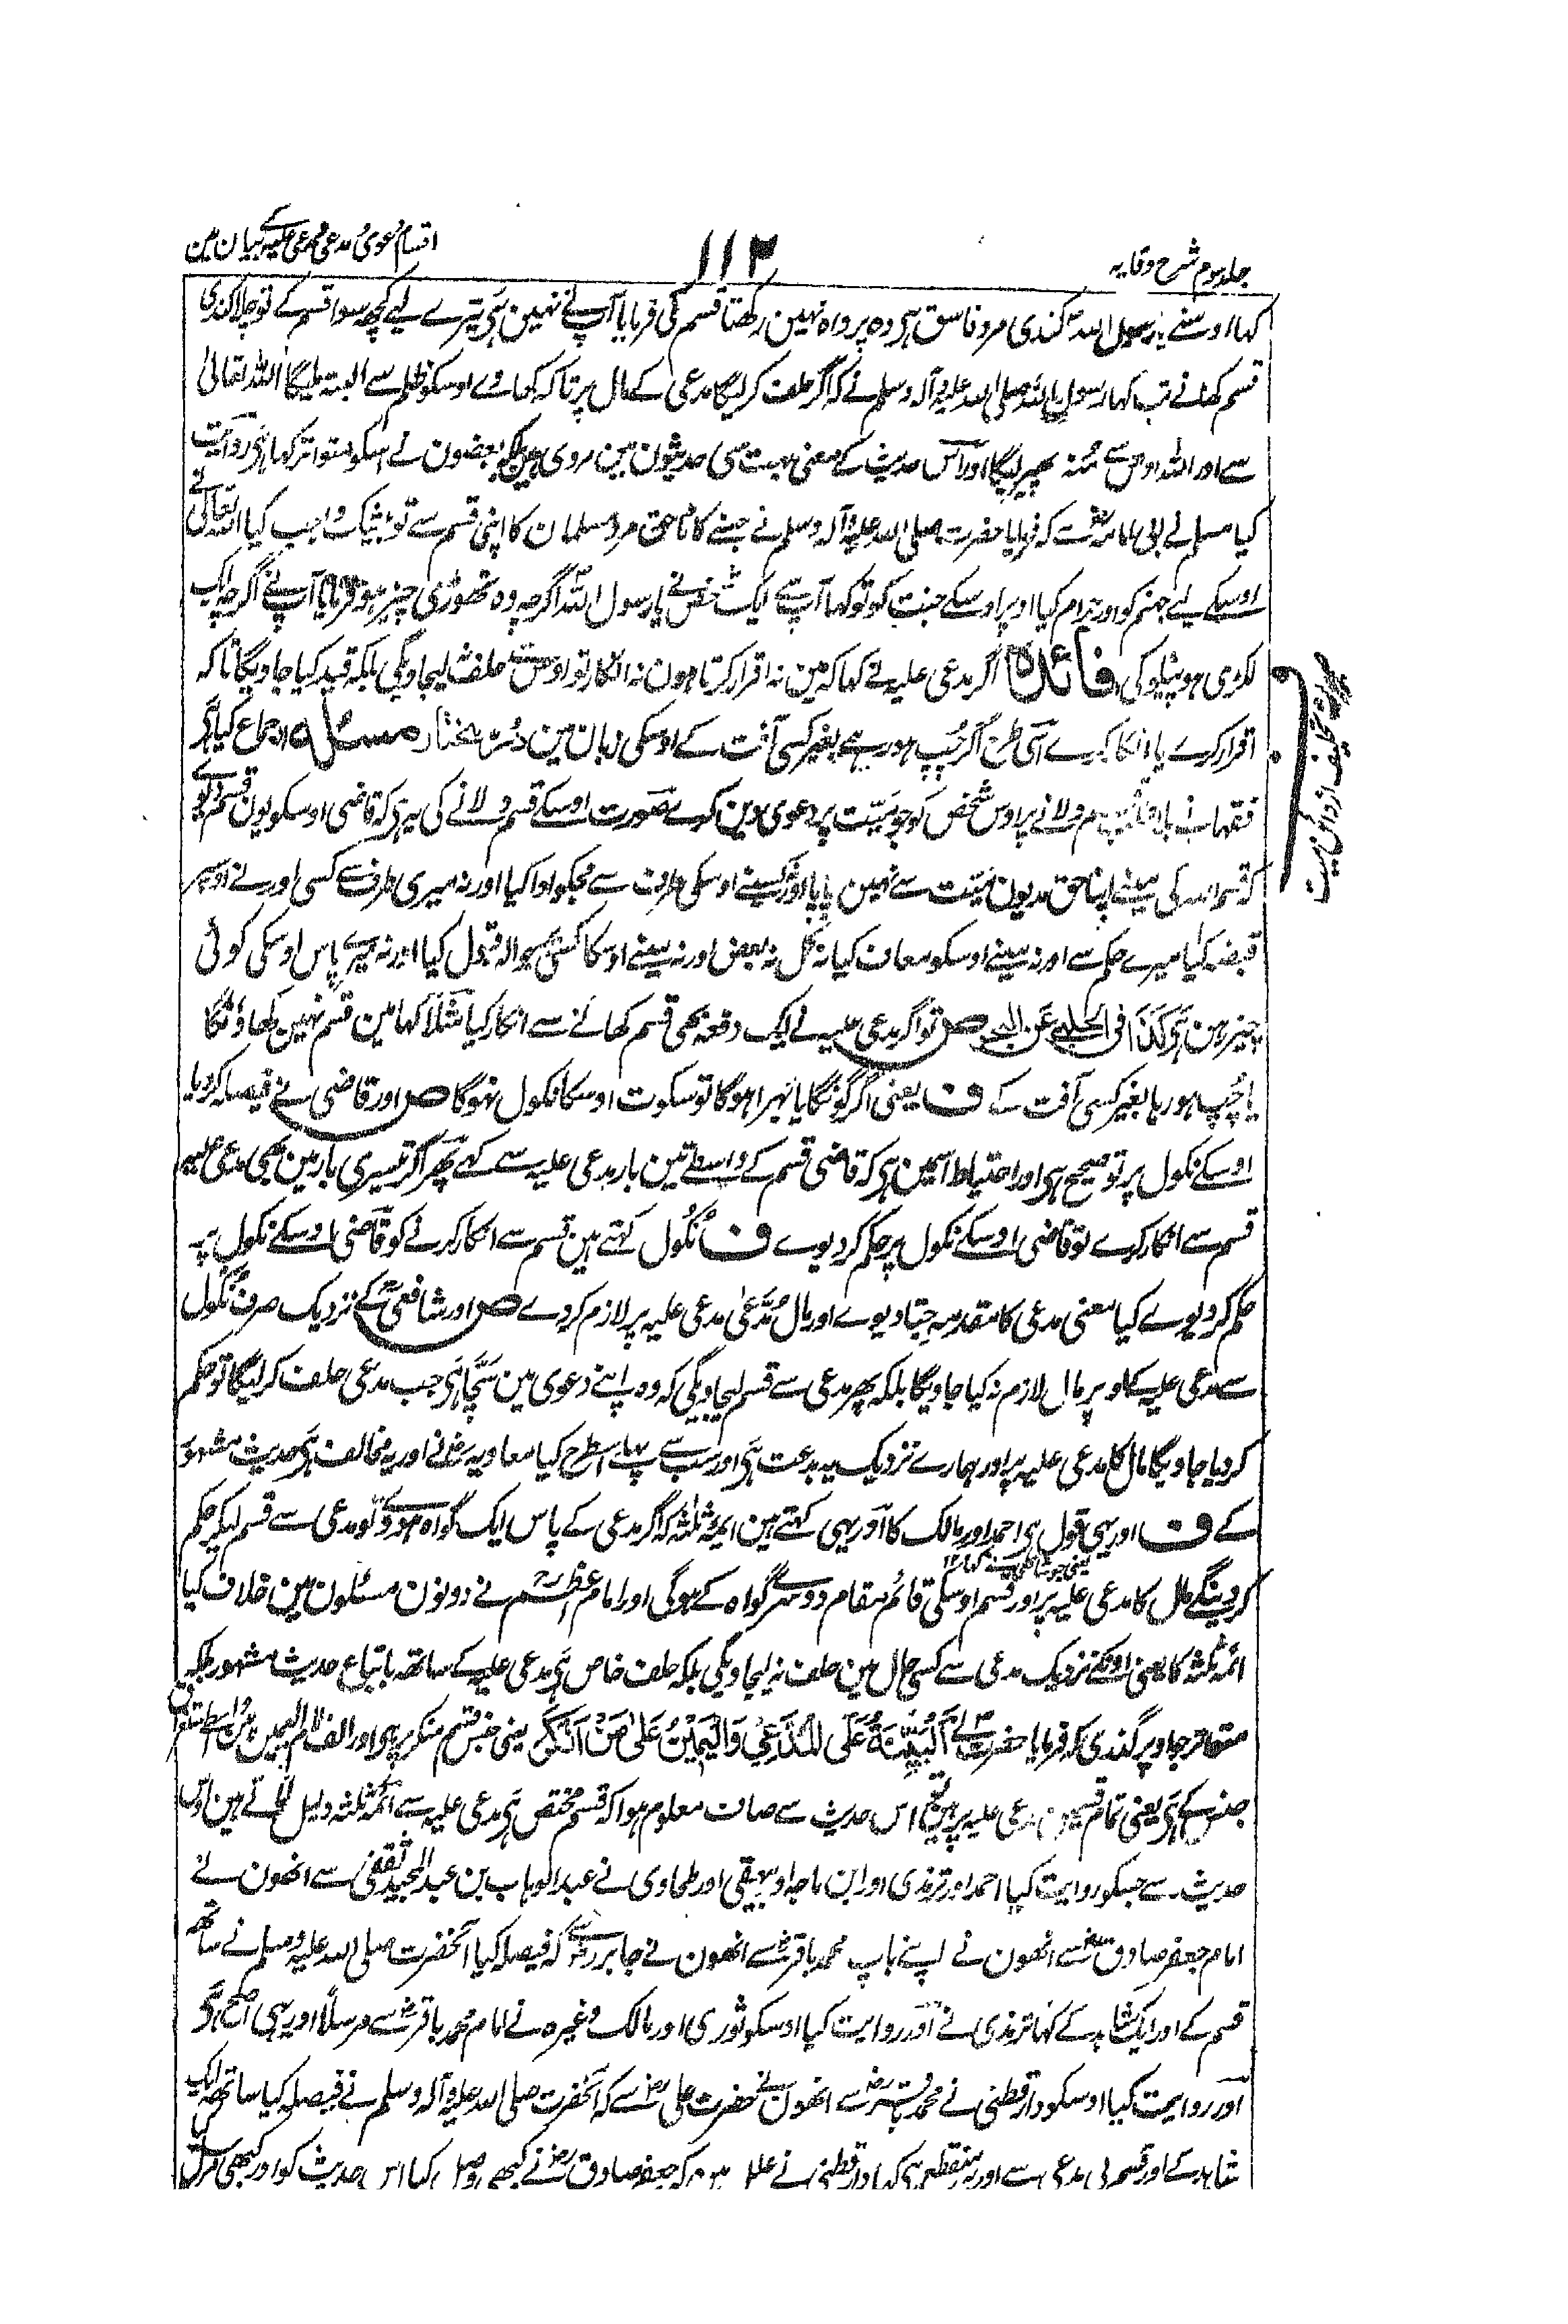 جلد سوم شرح وقایہ
۱۱۲
اقسام دعوی و مدعی مدعی علیہ کے بیان مین
کہا اوسنے یا رسول اللہ کندی مرد فاسق ہی وہ پرواہ نہین رکھتا قسم کی فرمایا آپ نے نہین ہی تیرے لیے کچھ سوا قسم کے تو چلا کندی
قسم کھانے تب کہا رسول اللہ صلی اللہ علیہ وآلہ وسلم نے کہ اگر حلف کر لیگا مدعی کے مال پر تا کہ کھاوے اوسکو ظلم سے البتہ ملیگا اللہ تعالیٰ
سے اور اللہ اوس سے منہ پھیر لیگا اور اس حدیث کے معنی بہت سی حدیثون مین مروی ہین بلکہ بعضون نے اسکو متواتر کہا ہی روایت
کیا مسلم نے ابی امامہ سے کہ فرمایا حضرت صلی اللہ علیہ وآلہ وسلم نے جسنے کاٹا حق مرد مسلمان کا اپنی قسم سے تو بیشک واجب کیا اللہ تعالیٰ نے
اوسکے لیے جہنم کو اور حرام کیا اوپر اوسکے جنت کو تو کہا آپ سے ایک شخص نے یا رسول اللہ اگرچہ وہ تھوڑی چیز ہو فرمایا آپ نے اگرچہ ایک
لکڑی ہو پیلو کی فائدہ اگر مدعی علیہ نے کہا کہ مین نہ اقرار کرتا ہون نہ انکار تو اوس سے حلف نہ لیجاویگی بلکہ قید کیا جاویگا تا کہ
اقرار کرے یا انکار کرے اسی طرح اگر چپ ہو رہے بغیر کسی آفت کے اوسکی زبان مین درمختار مسئلہ اجماع کیا ہی
فقہا نے بلا قسم دلانے پر اوس شخص کو جو میت پر دعوی دین کرے صورت اوسکے قسم دلانے کی یہ ہی کہ قاضی اوسکو یون قسم دیوے
کہ قسم اللہ کی مینے اپنا حق مدیون میت سے نہین پایا اور نہ کسینے اوسکی طرف سے مجکو ادا کیا اور نہ میری طرف سے کسی اور نے اوسپر
قبضہ کیا میرے حکم سے اور نہ مینے اوسکو معاف کیا نہ کل نہ بعض اور نہ مینے اوسکا کسی پر حوالہ قبول کیا اور نہ میرے پاس اوسکی کوئی
چیز رہن ہی کذا فی الحلبی عن البحر ص تو اگر مدعی علیہ نے ایک دفعہ بھی قسم کھانے سے انکار کیا مثلاً کہا مین قسم نہین کھاؤنگا
یا چپ ہو رہا بغیر کسی آفت کے ف یعنی اگر گونگا یا بہرا ہوگا تو سکوت اوسکا نکول نہوگا ص اور قاضی نے فیصلہ کر دیا
اوسکے نکول پر تو صحیح ہی اور احتیاط اسمین ہی کہ قاضی قسم کے واسطے تین بار مدعی علیہ سے کہے پھر اگر تیسری بار مین بھی مدعی علیہ
قسم سے انکار کرے تو قاضی اوسکے نکول پر حکم کر دیوے ف نکول کہتے ہین قسم سے انکار کرنے کو قاضی اوسکے نکول پر
حکم کر دیوے کیا معنی مدعی کا مقدمہ جتا دیوے اور مال مدعی مدعی علیہ پر لازم کر دے ص اور شافعی کے نزدیک صرف نکول
سے مدعی علیہ کے اوپر مال لازم نہ کیا جاویگا بلکہ پھر مدعی سے قسم لیجاویگی کہ وہ اپنے دعوی مین سچا ہی جب مدعی حلف کر لیگا تو حکم
کر دیا جاویگا مال کا مدعی علیہ پر اور ہمارے نزدیک یہ بدعت ہی اور سب سے پہلے اسطرح کیا معاویہ نے اور یہ مخالف ہی حدیث مشہور
کے ف اور یہی قول ہی احمد اور مالک کا اور یہی کہتے ہین ایمہ ثلثہ کہ اگر مدعی کے پاس ایک گواہ ہووے تو مدعی سے قسم لیکر حکم
کر دینگے مال کا مدعی علیہ پر اور قسم اوسکی قائم مقام دوسرے گواہ کے ہوگی اور امام اعظم نے دونون مسئلون مین خلاف کیا
ائمہ ثلثہ کا یعنی اونکے نزدیک مدعی سے کسی حال مین حلف نہ لیجاویگی بلکہ حلف خاص ہی مدعی علیہ کے ساتھ باتباع حدیث مشہور بلکہ
متواتر جو اوپر گذری کہ فرمایا حضرت نے اَلْبَیِّنَةُ عَلَی الْمُدَّعِیْ وَالْیَمِیْنُ عَلیٰ مَنْ اَنْکَرَ یعنی جنس قسم منکر پر ہی اور الف لام الیمین مین واسطے استغراق
جنس کے ہی یعنی تمام قسمین مدعی علیہ پر ہین اس حدیث سے صاف معلوم ہوا کہ قسم مختص ہی مدعی علیہ سے ائمہ ثلثہ دلیل لاتے ہین اوس
حدیث سے جسکو روایت کیا احمد اور ترمذی اور ابن ماجہ اور بیہقی اور طحاوی نے عبد الوہاب بن عبد المجید ثقفی سے انھون نے
امام جعفر صادق سے انھون نے اپنے باپ محمد باقر سے انھون نے جابر سے کہ فیصلہ کیا آنحضرت صلی اللہ علیہ وسلم نے ساتھ
قسم کے اور ایک شاہد کے کہا ترمذی نے اور روایت کیا اوسکو ثوری اور مالک وغیرہ نے امام محمد باقر سے مرسلاً اور یہی اصح ہی
اور روایت کیا اوسکو دارقطنی نے محمد باقر سے انھون نے حضرت علی سے کہ آنحضرت صلی اللہ علیہ وآلہ وسلم نے فیصلہ کیا ساتھ ایک
شاہد کے اور قسم لی مدعی سے اور یہ منقطع ہی کہا دارقطنی نے علل مین کہ جعفر صادق نے کبھی وصل کیا اس حدیث کو اور کبھی مرسل